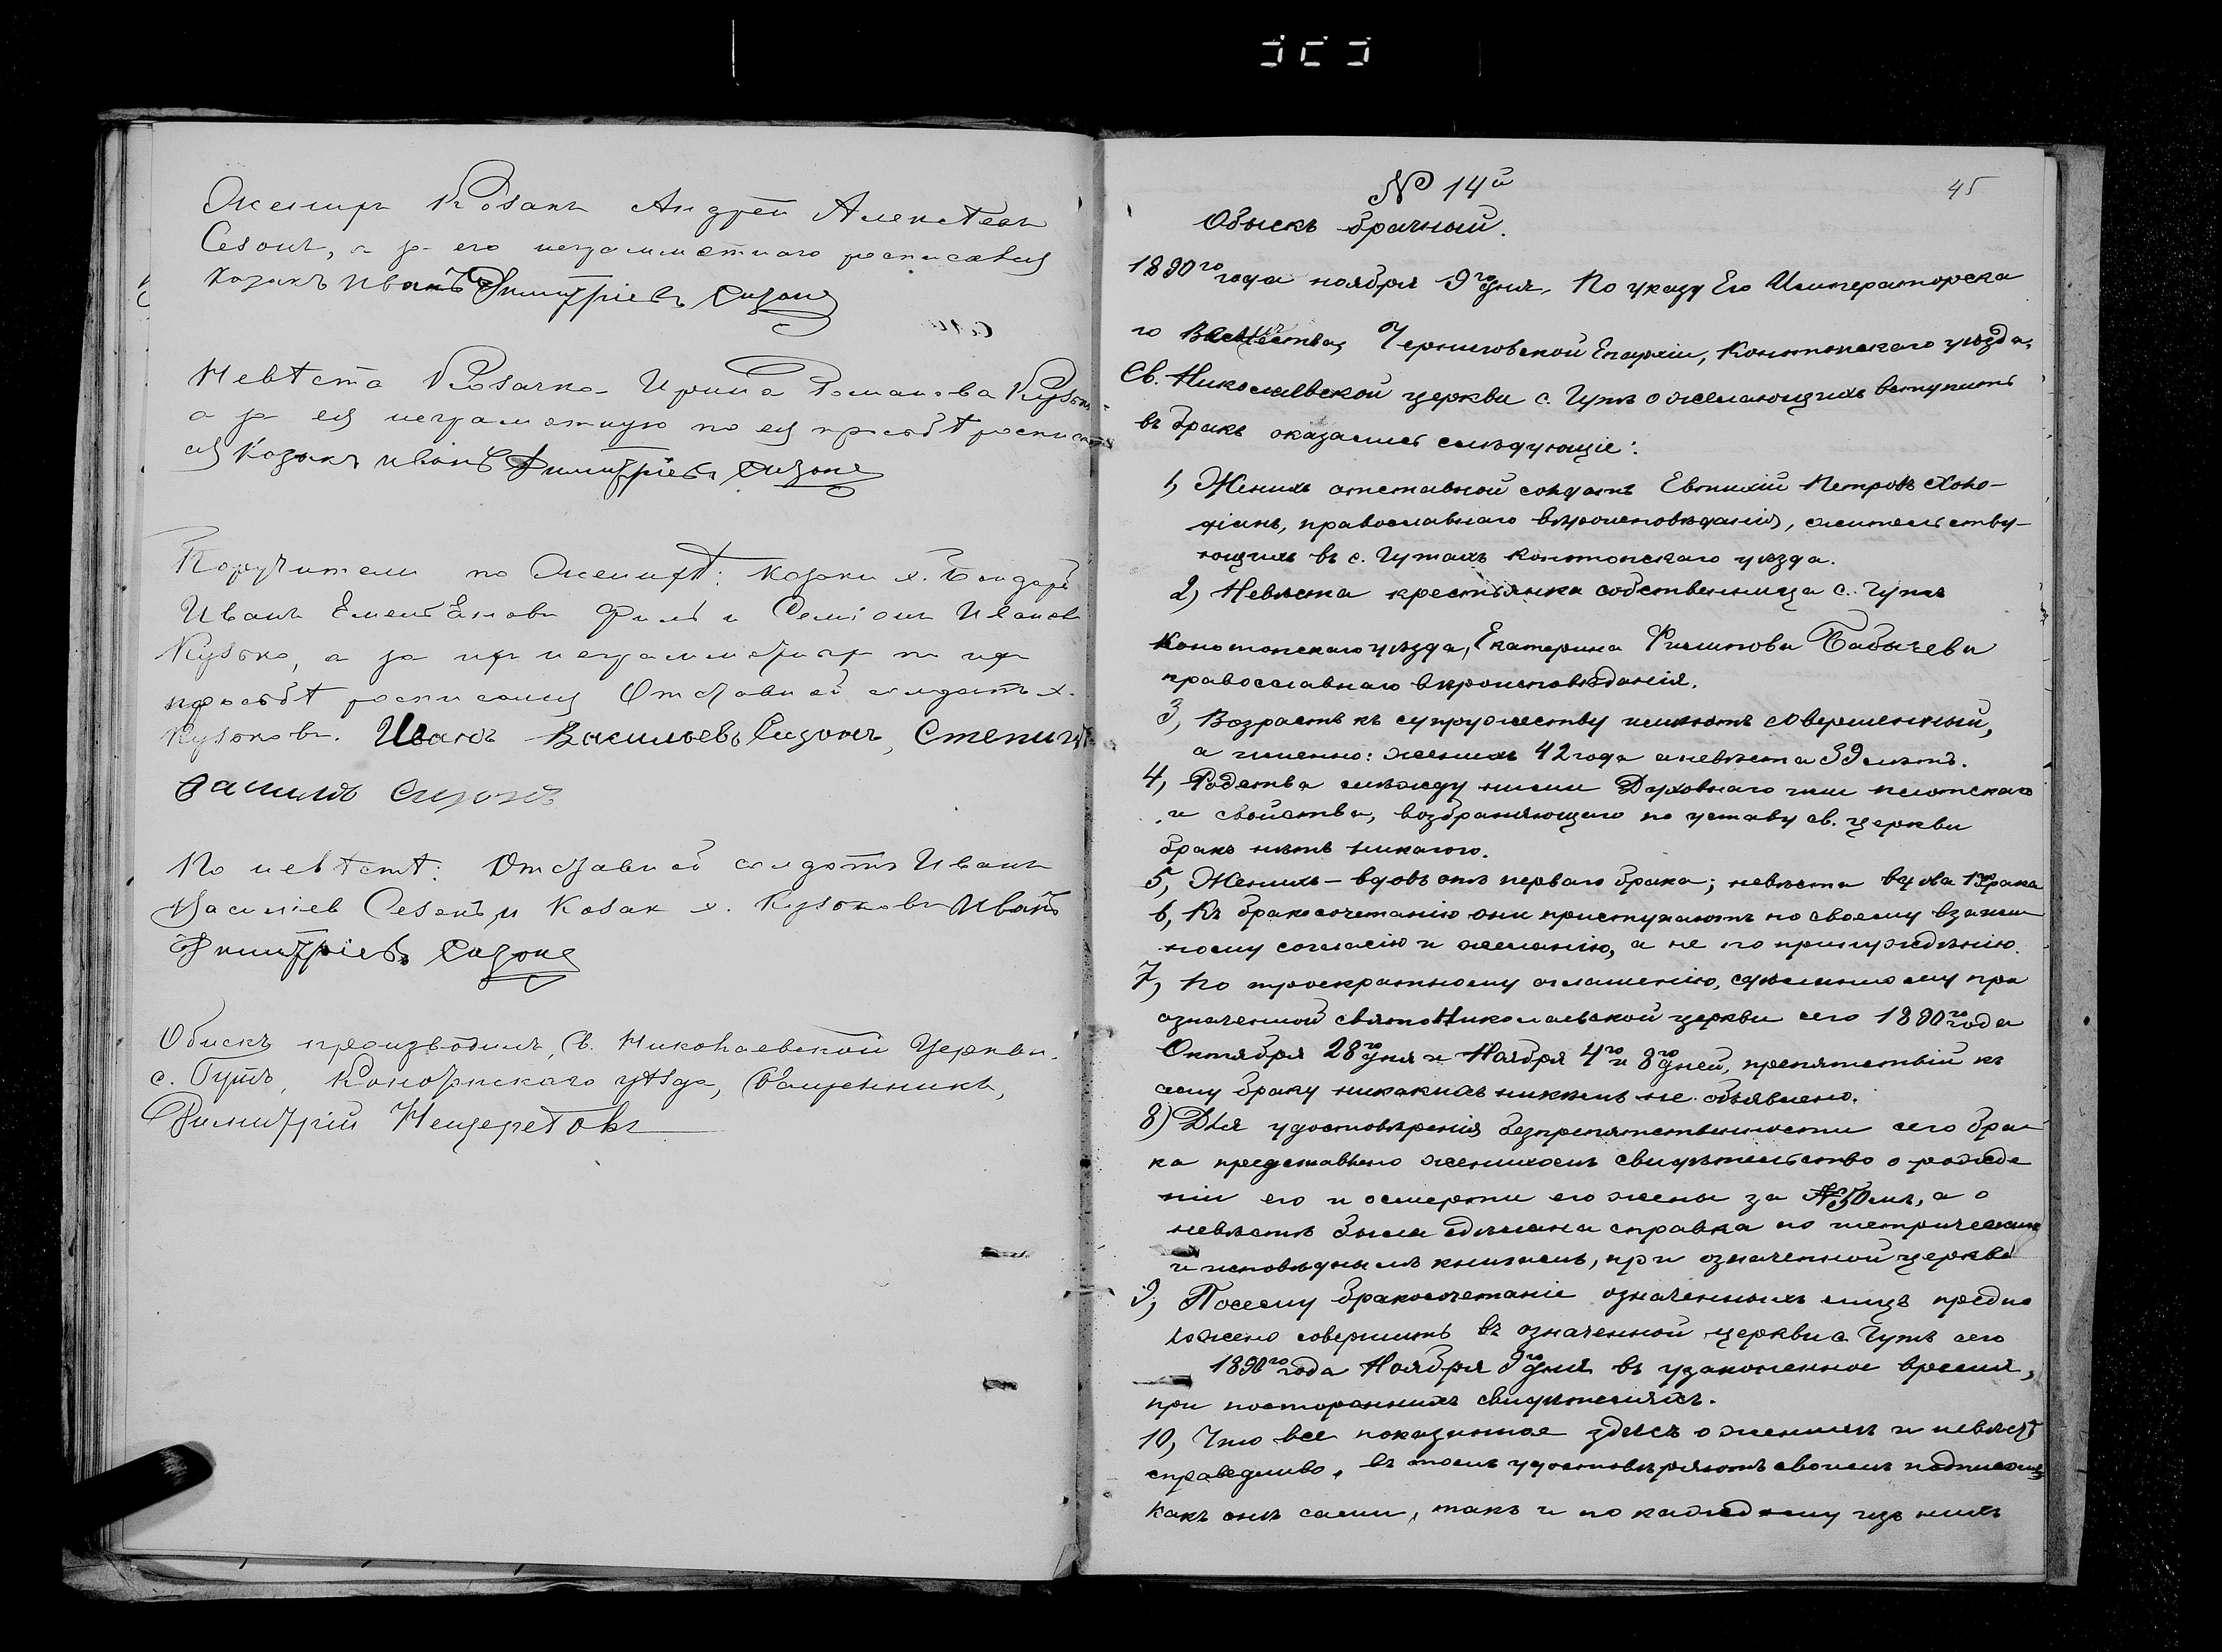 Женихъ Козакъ Андрей Алексѣевъ
Сезонъ, а за его неграмотнаго росписался
козакъ Иванъ Димитріевъ Сизонъ
Невѣста Козачка Ирина Романова Кузько
а за ея неграмотную по ея просьбѣ росписал
ся Козакъ Иванъ Димитріевъ Сизонъ
Поручители по Женихѣ: козаки х.
Иванъ Емельяновъ и Семіонъ Ивановъ
Кузько, а за ихъ неграммотныхъ по ихъ
просьбѣ росписался Отставной солдатъ х.
Кузьковъ. Иванъ Васильевъ Сизонъ, Степанъ
Сизонъ
По невѣстѣ: Отставной солдатъ Иванъ
Василіев Сезонъ и Козак х. Кузькова Иванъ
Димитріевъ Сизонъ
Обискъ производилъ, Св. Николаевской Церкви.
с. Гутъ, Конотопскаго уѣзда, Священникъ,
Димитрій Нещеретовъ
45
№ 14й
Обыскъ брачный.
1890го года ноября 9го дня, По указу Его Императорска
го Величества, Черниговской Епархіи, Конотопскаго уѣзда,
Св. Николаевской церкви с. Гутъ о желающихъ вступить
въ бракъ оказались слѣдующіе:
1, Женихъ отставной солдатъ Евтихій Петровъ Холо-
, православнаго вѣроисповѣданія, жительству-
ющихъ въ с. Гутахъ Конотопскаго уѣзда.
2, Невѣста крестьянка собственница с. Гутъ
Конотопскаго уѣзда, Екатерина Филипова Бабычева
православнаго вѣроисповѣданія.
3, Возрастъ къ супружеству имѣютъ совершенный,
а именно: женихъ 42 года а невѣста 39 лѣтъ.
4, Родства между ними Духовнаго или плотскаго
и свойства, возбраняющаго по уставу св. церкви
бракъ нѣтъ никакого.
5, Женихъ – вдовъ отъ перваго брака; невѣста вдова 1го брака
6, Къ бракосочетанію они приступаютъ по своему взаим
ному согласію и желанію, а не по принужденію.
7, По троекратному оглашенію, сдѣланному при
означенной святоНиколаевской церкви сего 1890го года
Октября 28го дня и Ноября 4го и 8го дней, препятствій къ
сему браку никакихъ никѣмъ не объявлено.
8) Для удостовѣренія безпрепятственности сего бра
ка представлено женихомъ свидѣтельство о рожде
ніи его и о смерти его жены за №50мъ, а о
невѣстѣ была сдѣлана справка по метрическимъ
и исповѣднымъ книгамъ, при означенной церкви
9, Посему бракосочетаніе означенныхъ лицъ предпо
ложено совершить въ означенной церкви с. Гутъ сего
1890го года Ноября 9го дня въ узаконенное время,
при постороннихъ свидѣтеляхъ.
10, Что все показанное здѣсь о женихѣ и невѣстѣ
справедливо, въ томъ удостовѣряютъ своимъ подписомъ
какъ они сами, такъ и по каждому изъ нихъ